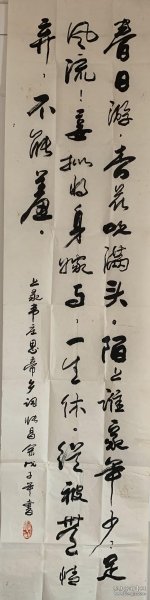 春日游.杏花吹满头.陌上谁家年少,足
风流!妾拟将身嫁与,一生休.纵被無情
弃,不能羞.
上录韦庄思帝乡词 戊子年書